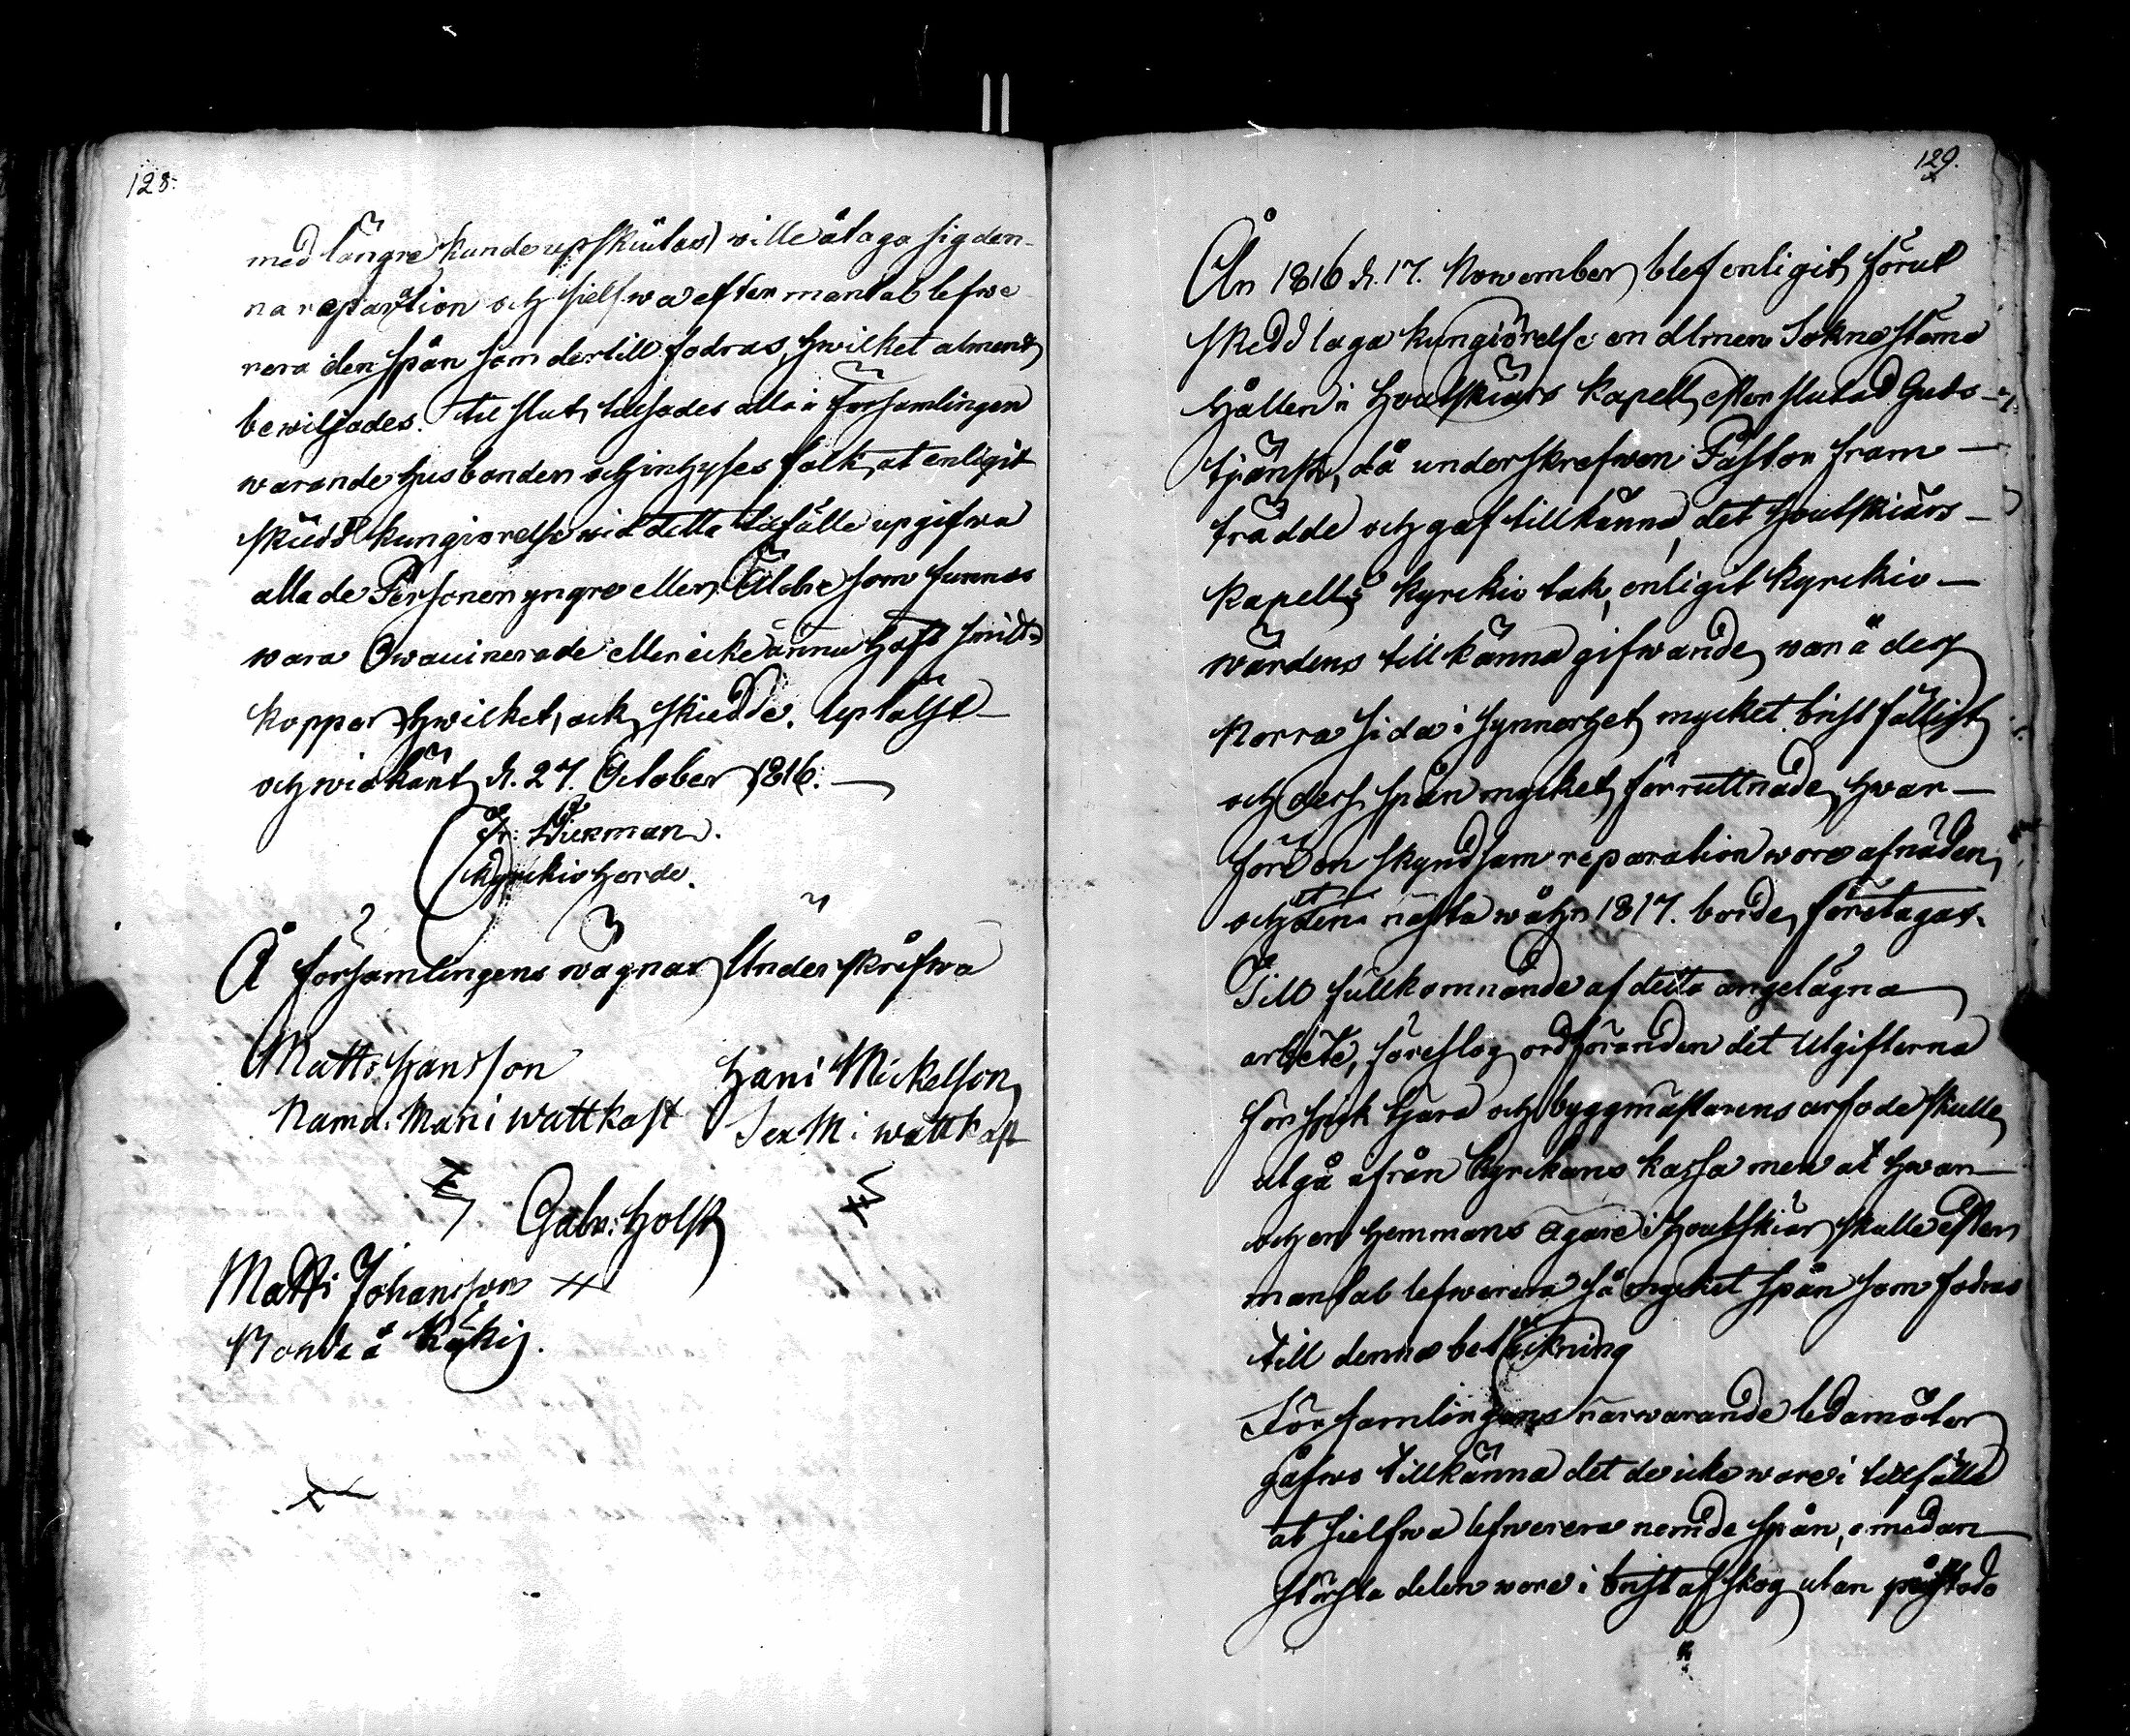 128.
med längre kunde upskiutas) wille åtaga sig den-
na reparation och sielfwa efter mantal lefwe
rera den spån som dertill fodras, hwilket alment
bewiljades. Til slut, tilsades alla i Församlingen
warande husbonder och inhyses folk, at enligit
skiedd kungiorelse wid detta tilfälle upgifwa
alla de Personer yngre eller Äldre som funnos
wara Owaccinerade eller icke ännu haft smitt-
koppor, hwilket, ock skiedde. Uplåist
och widkänt d. 27. October 1816.
Fr: Wickman.
Kyrckio herde.
Å församlingens wägnar Underskrifwa
Matts Hansson
Hans Mickelson
Nämd. Man i Wattkast
Sex M: i wattkast
Gabr: Holst
Matts Johansson
Bonde å Kyrkij.
129.
År 1816 d. 17. November blef enligit förut
skedd laga kungiörelse en Almen Soknestäma
hållen i Houtskiärs Kapell, efter slutad Guds-
tjänst, då underskrefwen Pastor fram-
trädde och gaf tillkänna, det Houtskiärs-
Kapells kyrckio tak, enligit kyrckio-
wärdens tillkänna gifwande, war å dess
Norra sida i synnerhet mycket bristfälligt
och dess spån mycket förruttnade, hwar-
före en skyndsam reparation wore af nöden,
et
och den nästa wåhr 1817. borde företagas.
Till fullkomnande af detta angelägna
arbete, föreslog ordföranden det Utgifterna
för spik tjära och byggmästarens arfode skulle
utgå ifrån Kyrckans kassa men at hwar
och en hemmans ägare i Houtskiär skulle efter
mantal lefwerera så mycket spån som fodras
till denna betäckning
Församlingens närwarande ledamöter
gåfwo tillkänna det de icke wore i tillfälle
at sielfwa lefwerera nemde spån, emedan
största delen wore i brist af skog utan påstodo